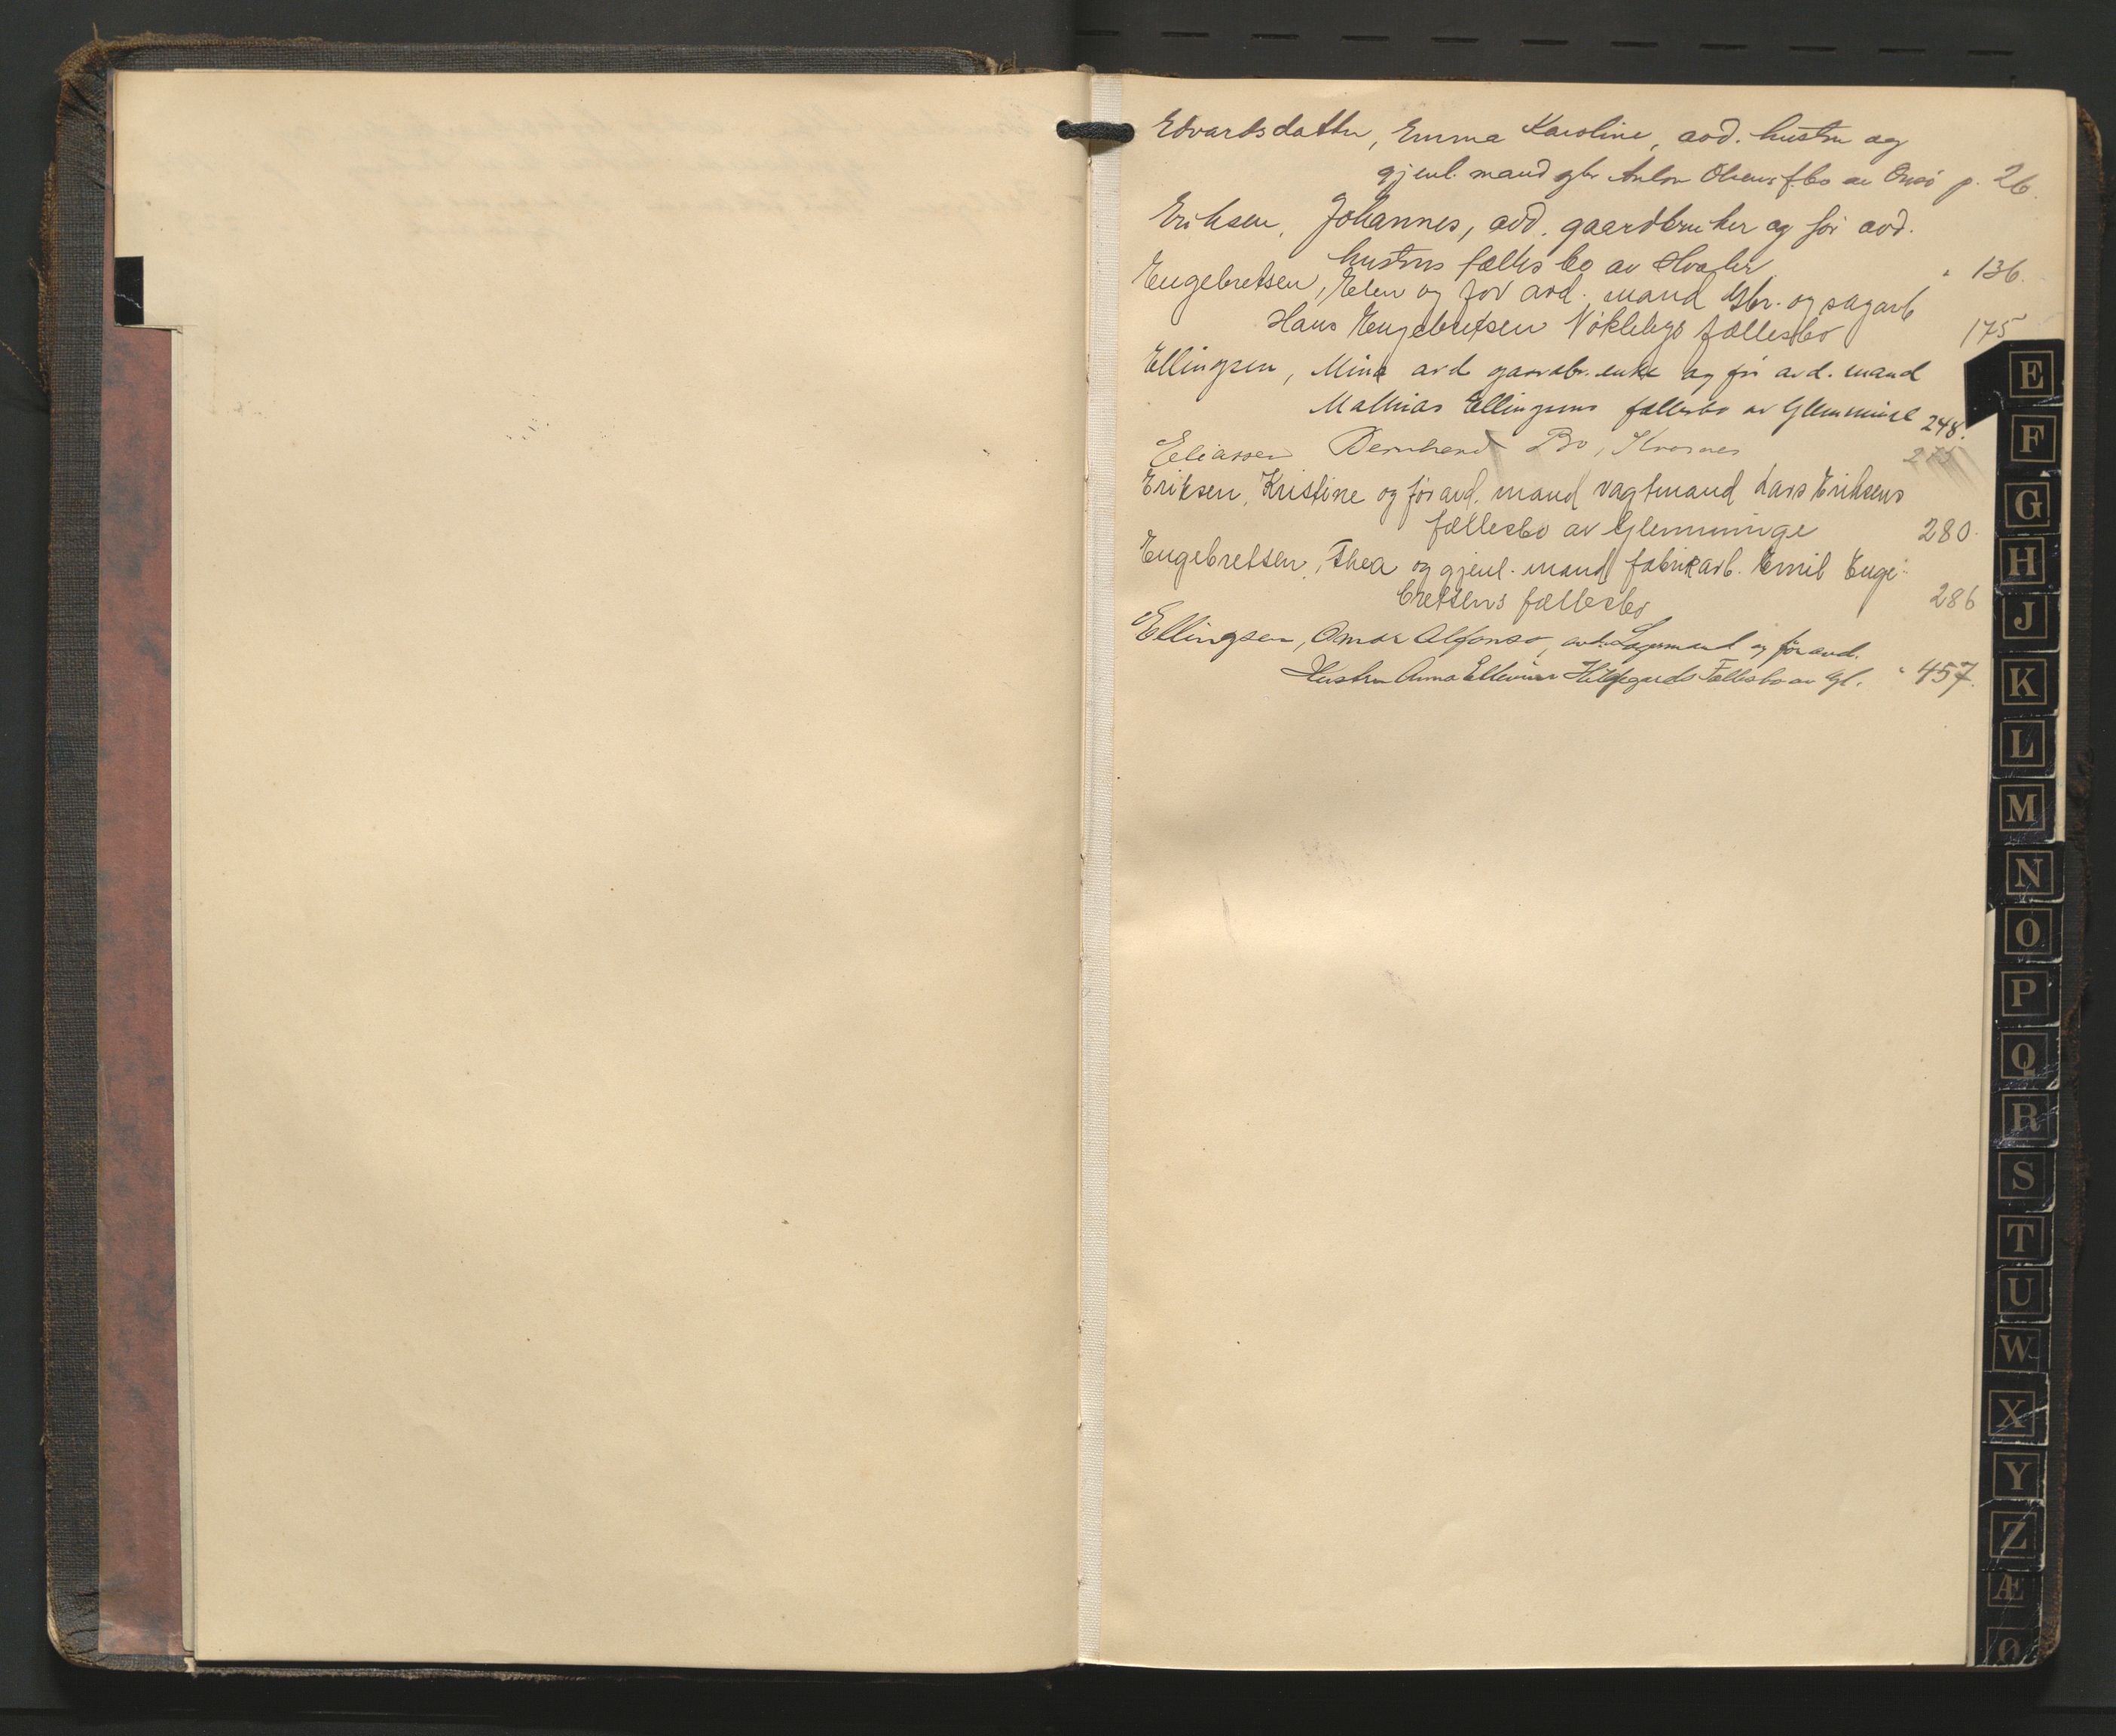 Edvardsdatter, Emma Karoline, avd. hustru og
gjenl. mand gbr Anton Olsens f.bo av Onsö p. 26.
Eriksen, Johannes, avd. gaardbruker og för avd.
hustrus fælles bo av Hvaler " 136.
Engebretsen, Elen og før avd. mand Gbr. og sagarb
Hans Engebretsen Nøklebys fællesbo 175
Ellingsen, Mina avd gaardbr. enke og för avd. mand
Mathias Ellingsens fællesbo av Glemminge 248.
Eliassen Bernhard Bo, 275
Eriksen, Kristine og før avd. mand vagtmand Lars Eriksens
fællesbo av Glemminge 280.
Engebretsen, Thea og gjenl. mand fabrikarb. Emil Enge-
bretsens fællesbo 286
Ellingsen, Omar Alfonso, avd. Lagermand og för avd.
Hustru Anna Hildegards Fællesbo av Gl. " 457.
E
F
G
H
J
K
L
M
N
O
P
Q
R
S
T
U
W
X
Y
Z
Æ
Ø